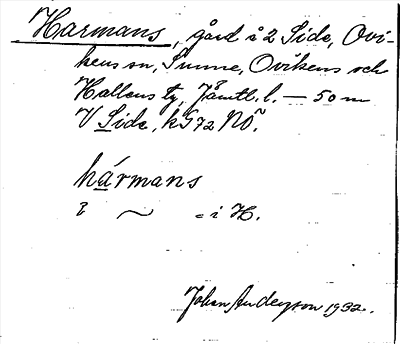 Harmans, gård å 2 Side, Ovi-
kens sn, Sunne, Ovikens och
Hallens tg, Jämtl. l. — 50 m
V Side, kG72 NÖ.
hármans
i ~ = i H.
Johan Anderson 1932.